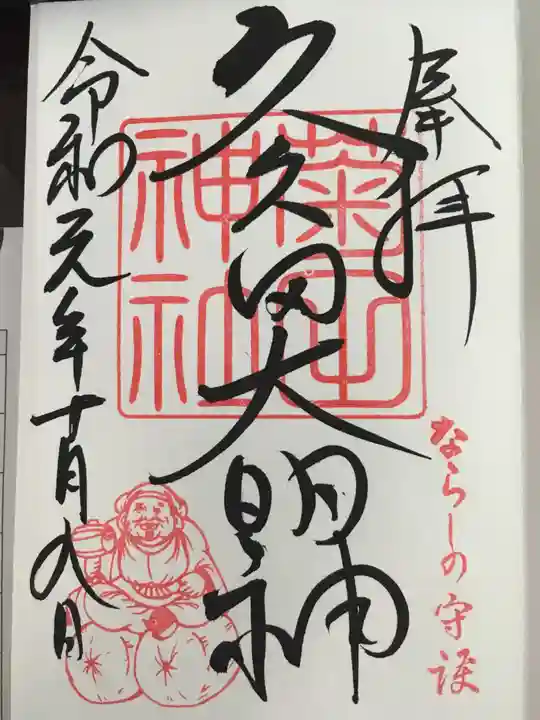 奉拝
ならしの守護
久久田大明神
菊田神社
令和元年十月九日